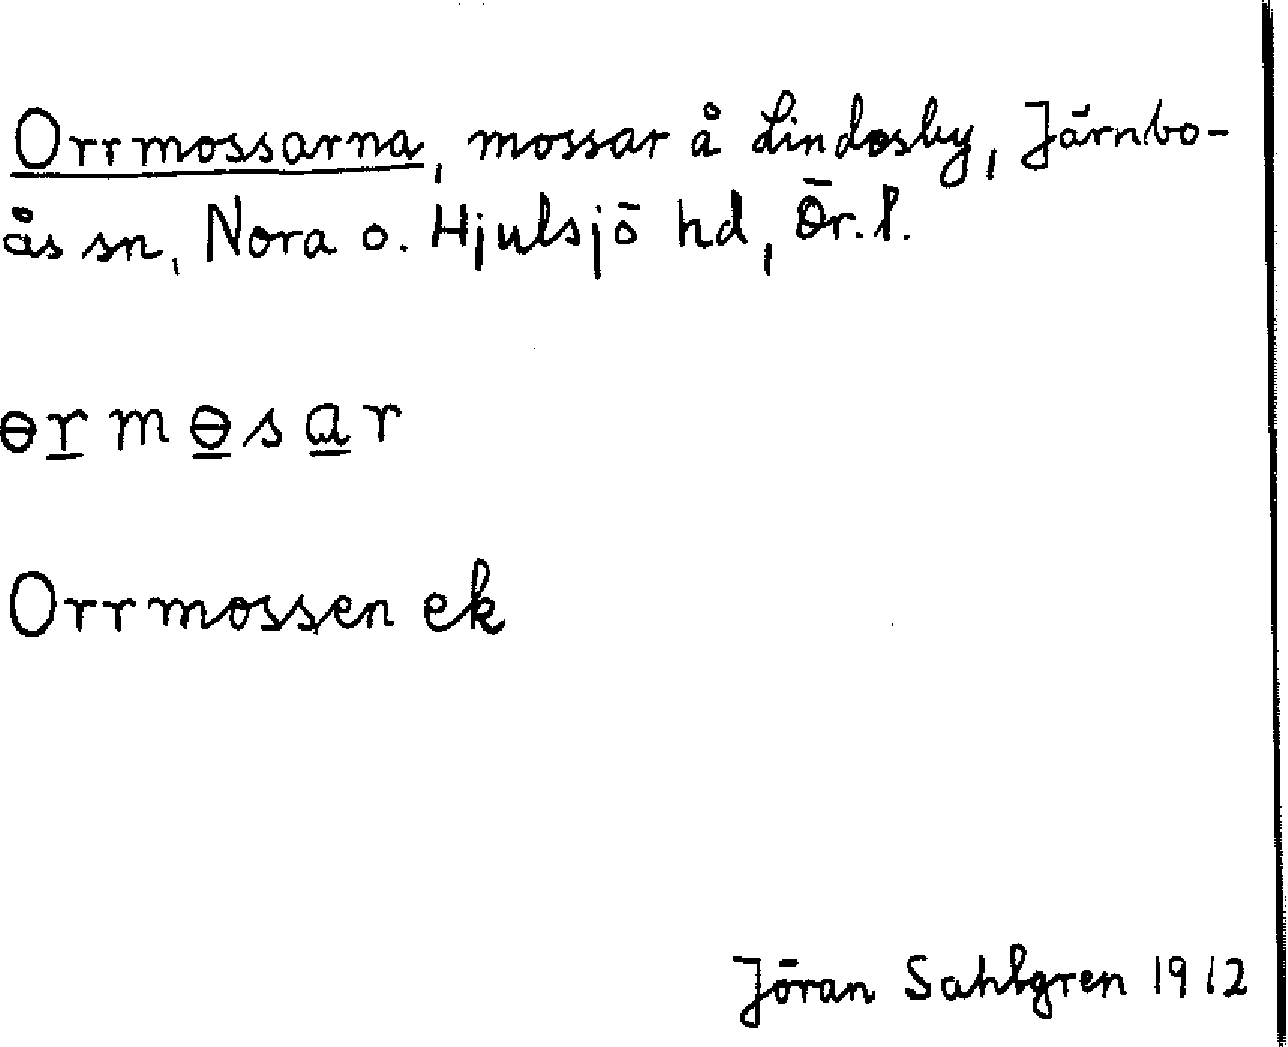 Orrmossarna, mossar å Lindesby, Järnbo-
ås sn, Nora o. Hjulsjö hd, Ör. l.
ɵrmɵsar
Orrmossen ek
Jöran Sahlgren 1912